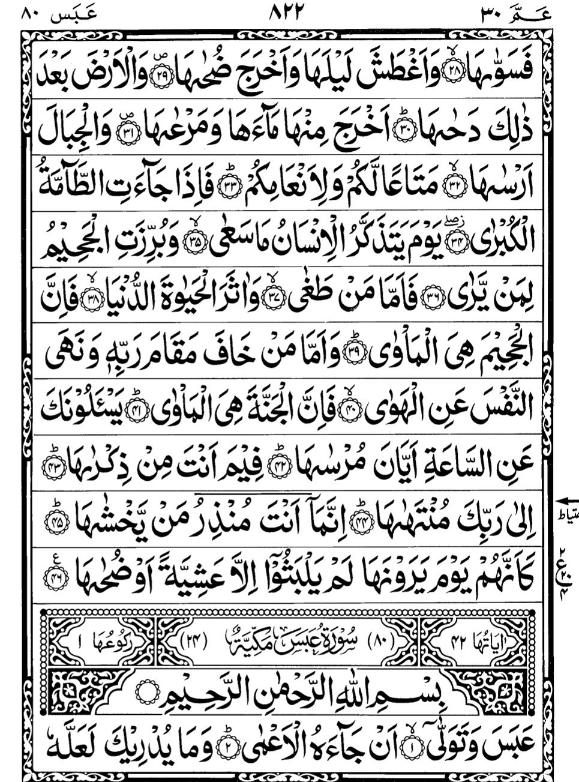 عَمَّ ٣٠ ٨٢٢ عَبَسَ ٨٠
فَسَوّٰىهَا ۙ﴿٢٨﴾ وَاَغْطَشَ لَيْلَهَا وَاَخْرَجَ ضُحٰىهَا ۪﴿٢٩﴾ وَالْاَرْضَ بَعْدَ
ذٰلِكَ دَحٰىهَا ؕ﴿٣٠﴾ اَخْرَجَ مِنْهَا مَآءَهَا وَمَرْعٰىهَا ۪﴿٣١﴾ وَالْجِبَالَ
اَرْسٰىهَا ۙ﴿٣٢﴾ مَتَاعًا لَّكُمْ وَلِاَنْعَامِكُمْ ؕ﴿٣٣﴾ فَاِذَا جَآءَتِ الطَّآمَّةُ
الْكُبْرٰى ۖ﴿٣٤﴾ يَوْمَ يَتَذَكَّرُ الْاِنْسَانُ مَا سَعٰى ۙ﴿٣٥﴾ وَبُرِّزَتِ الْجَحِيْمُ
لِمَنْ يَّرٰى ﴿٣٦﴾ فَاَمَّا مَنْ طَغٰى ۙ﴿٣٧﴾ وَاٰثَرَ الْحَيٰوةَ الدُّنْيَا ۙ﴿٣٨﴾ فَاِنَّ
الْجَحِيْمَ هِيَ الْمَاْوٰى ؕ﴿٣٩﴾ وَاَمَّا مَنْ خَافَ مَقَامَ رَبِّهٖ وَنَهَى
النَّفْسَ عَنِ الْهَوٰى ۙ﴿٤٠﴾ فَاِنَّ الْجَنَّةَ هِيَ الْمَاْوٰى ؕ﴿٤١﴾ يَسْئَلُوْنَكَ
عَنِ السَّاعَةِ اَيَّانَ مُرْسٰىهَا ؕ﴿٤٢﴾ فِيْمَ اَنْتَ مِنْ ذِكْرٰىهَا ؕ﴿٤٣﴾
اِلٰى رَبِّكَ مُنْتَهٰىهَا ؕ﴿٤٤﴾ اِنَّمَآ اَنْتَ مُنْذِرُ مَنْ يَّخْشٰىهَا ؕ﴿٤٥﴾
كَاَنَّهُمْ يَوْمَ يَرَوْنَهَا لَمْ يَلْبَثُوْٓا اِلَّا عَشِيَّةً اَوْ ضُحٰىهَا ﴿٤٦﴾ ع
٢
ع ٢٠
٤
اٰيَاتُهَا ٤٢ (٨٠) سُوْرَةُ عَبَسَ مَكِّيَّةٌ (٢٤) رُكُوْعُهَا ١
بِسْمِ اللّٰهِ الرَّحْمٰنِ الرَّحِيْمِ
عَبَسَ وَتَوَلّٰىٓ ۙ﴿١﴾ اَنْ جَآءَهُ الْاَعْمٰى ؕ﴿٢﴾ وَمَا يُدْرِيْكَ لَعَلَّهٗ